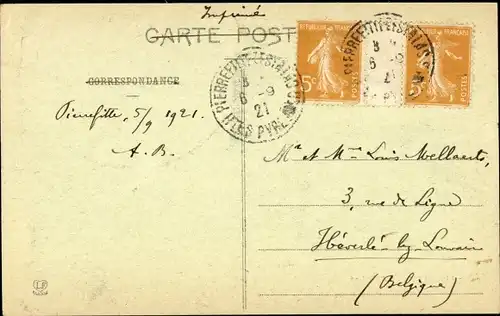 Imprimé
CARTE POST
CORRESPONDANCE
Pierrefitte, 5/9 1921.
A. B.
PIERREFITTE-NESTALAS
6 -9
21
HTES PYRENEES
REPUBLIQUE FRANÇAISE
5c
POSTES
PIERREFITTE-NESTALAS
6 -9
21
5c
POSTES
Mr et Mme Louis Mellaerts
3, rue de Ligne
Héverlé-lez-Louvain
(Belgique)
LB